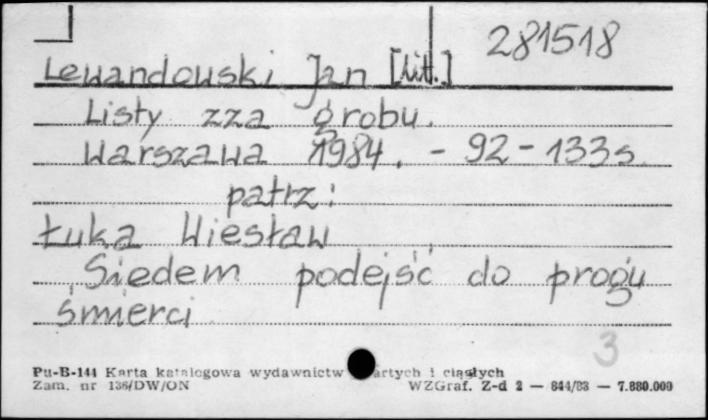 281518
Lewandowski Jan [lit.]
Listy zza grobu.
Warszawa 1984. - 92-133s
patrz:
Łuka Wiesław
Siedem podejść do progu
śmierci
3
Pu-B-141 Karta katalogowa wydawnictw artych i ciągłych
Zam. nr 136/DW/ON WZGraf. Z-d 2 — 844/83 — 7.880.000